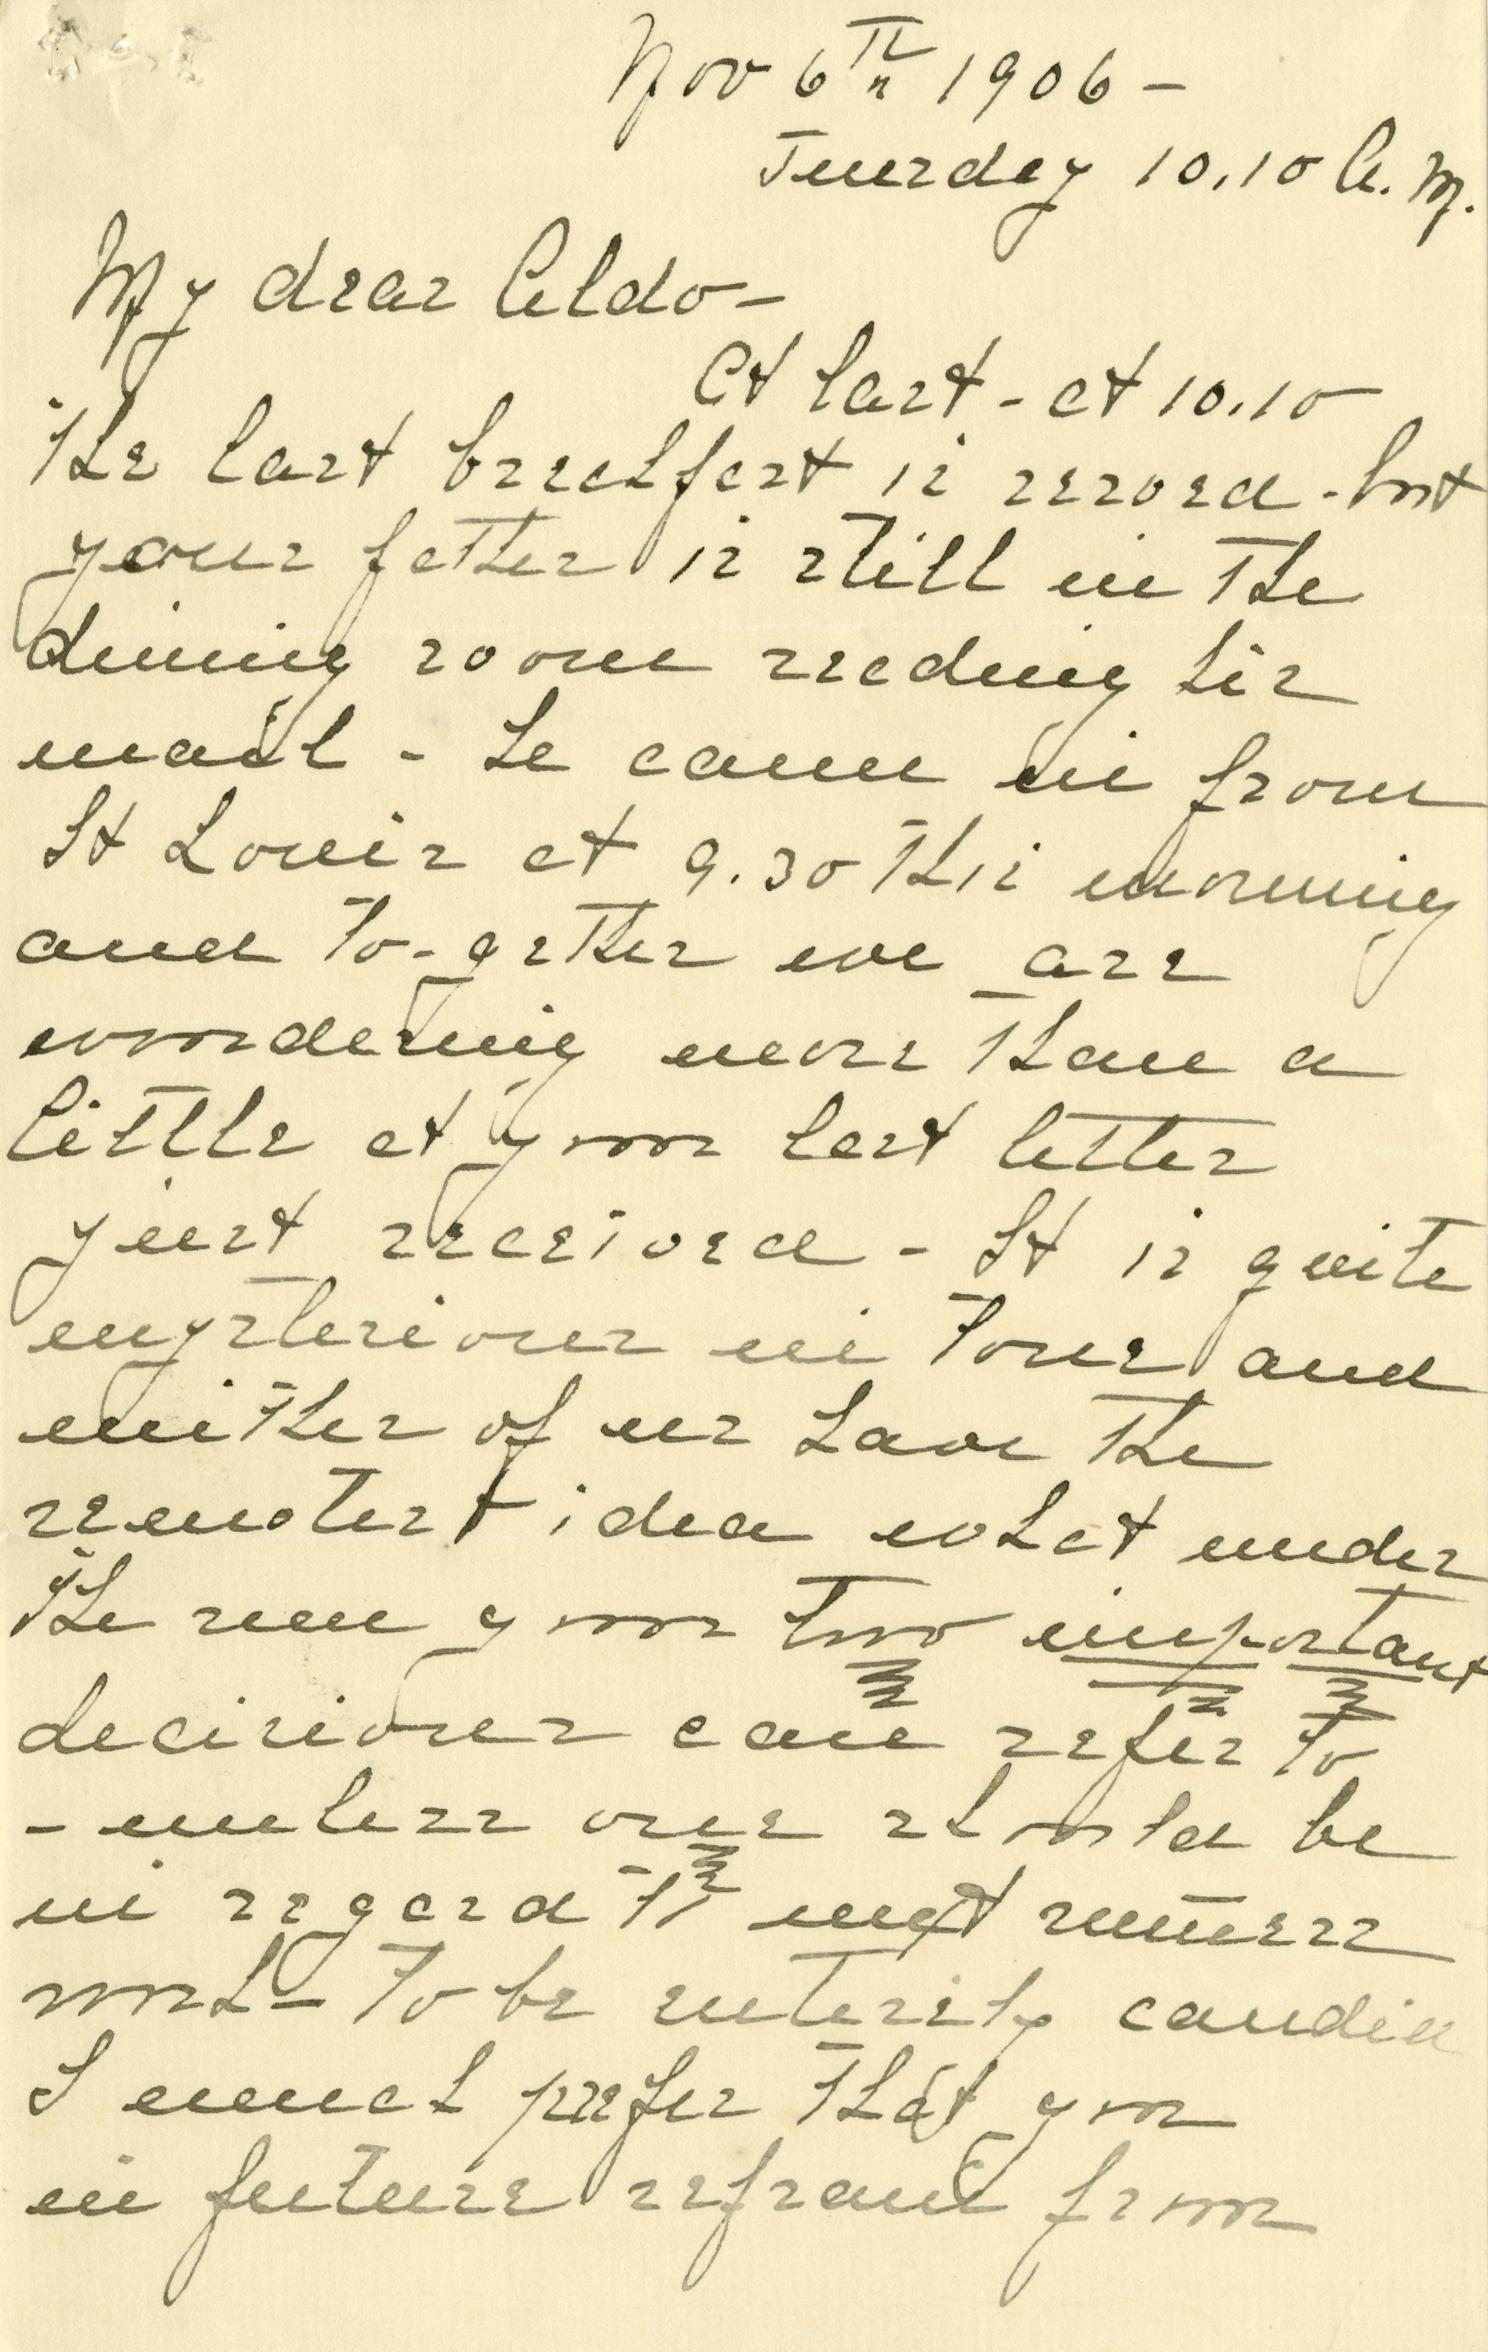 Nov 6th 1906 –
Tuesday 10.10 A. M.
My dear Aldo –
At last – at 10.10
the last breakfast is served – but
your father is still in the
dining room reading his
mail – he came in from
St Louis at 9.30 this morning
and to-gether we are
wondering more than a
little at your last letter
just received – It is quite
mysterious in tone and
neither of us have the
remotest idea what under
the sun your two important
decisions can refer to
– unless one should be
in regard to next summers
work – To be entirely candid
I much prefer that you
in future refrain from